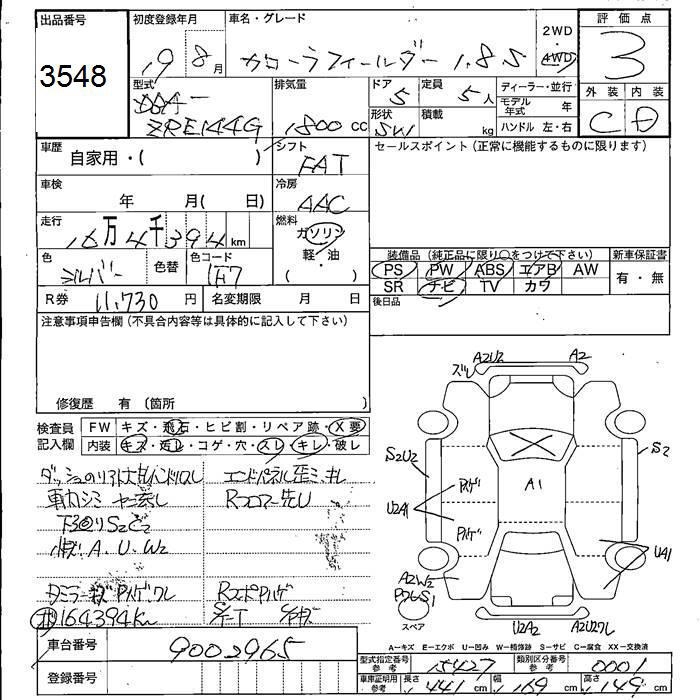 出品番号
3548
初度登録年月
19 8月
車名・グレード
カローラフィールダー 1.8S
2WD
4WD
評価点
3
型式
DBA-
ZRE144G
排気量
1800 cc
ドア
5
定員
5人
形状
SW
積載
kg
ディーラー・並行
モデル年式 年
ハンドル 左・右
外装 内装
C D
車歴
自家用・( )
シフト
FAT
セールスポイント(正常に機能するものに限ります)
車検
年 月( 日)
冷房
AAC
走行
16万4千394km
燃料
ガソリン
軽・油
( )
色
シルバー
色替
色コード
1F7
装備品(純正品に限り○をつけて下さい)
PS PW ABS エアB AW
SR ナビ TV カワ
新車保証書
有・無
後日品
R券 11,730円
名変期限 月 日
注意事項申告欄(不具合内容等は具体的に記入して下さい)
修復歴 有(箇所 )
検査員記入欄
FW キズ・飛石・ヒビ割・リペア跡・X要
内装 キズ・汚レ・コゲ・穴・スレ・キレ・破レ
下回りS2サビ2
小キズ A.U.W2
164394Km
エンドパネル歪ミ・キレ
RコーナーA先U
S/T
車台番号
9002965
登録番号
ズレ
A2U2
A2
S2U2
S2
U2A1
A1
U41
A2W2
S1
スペア
U2A2
A2U2ワレ
A=キズ E=エクボ U=凹み W=補修跡 S=サビ C=腐食 XX=交換済
型式指定番号 参考
15427
類別区分番号 参考
0001
車庫証明用 参考
長さ 441 cm
幅 169 cm
高さ 149 cm